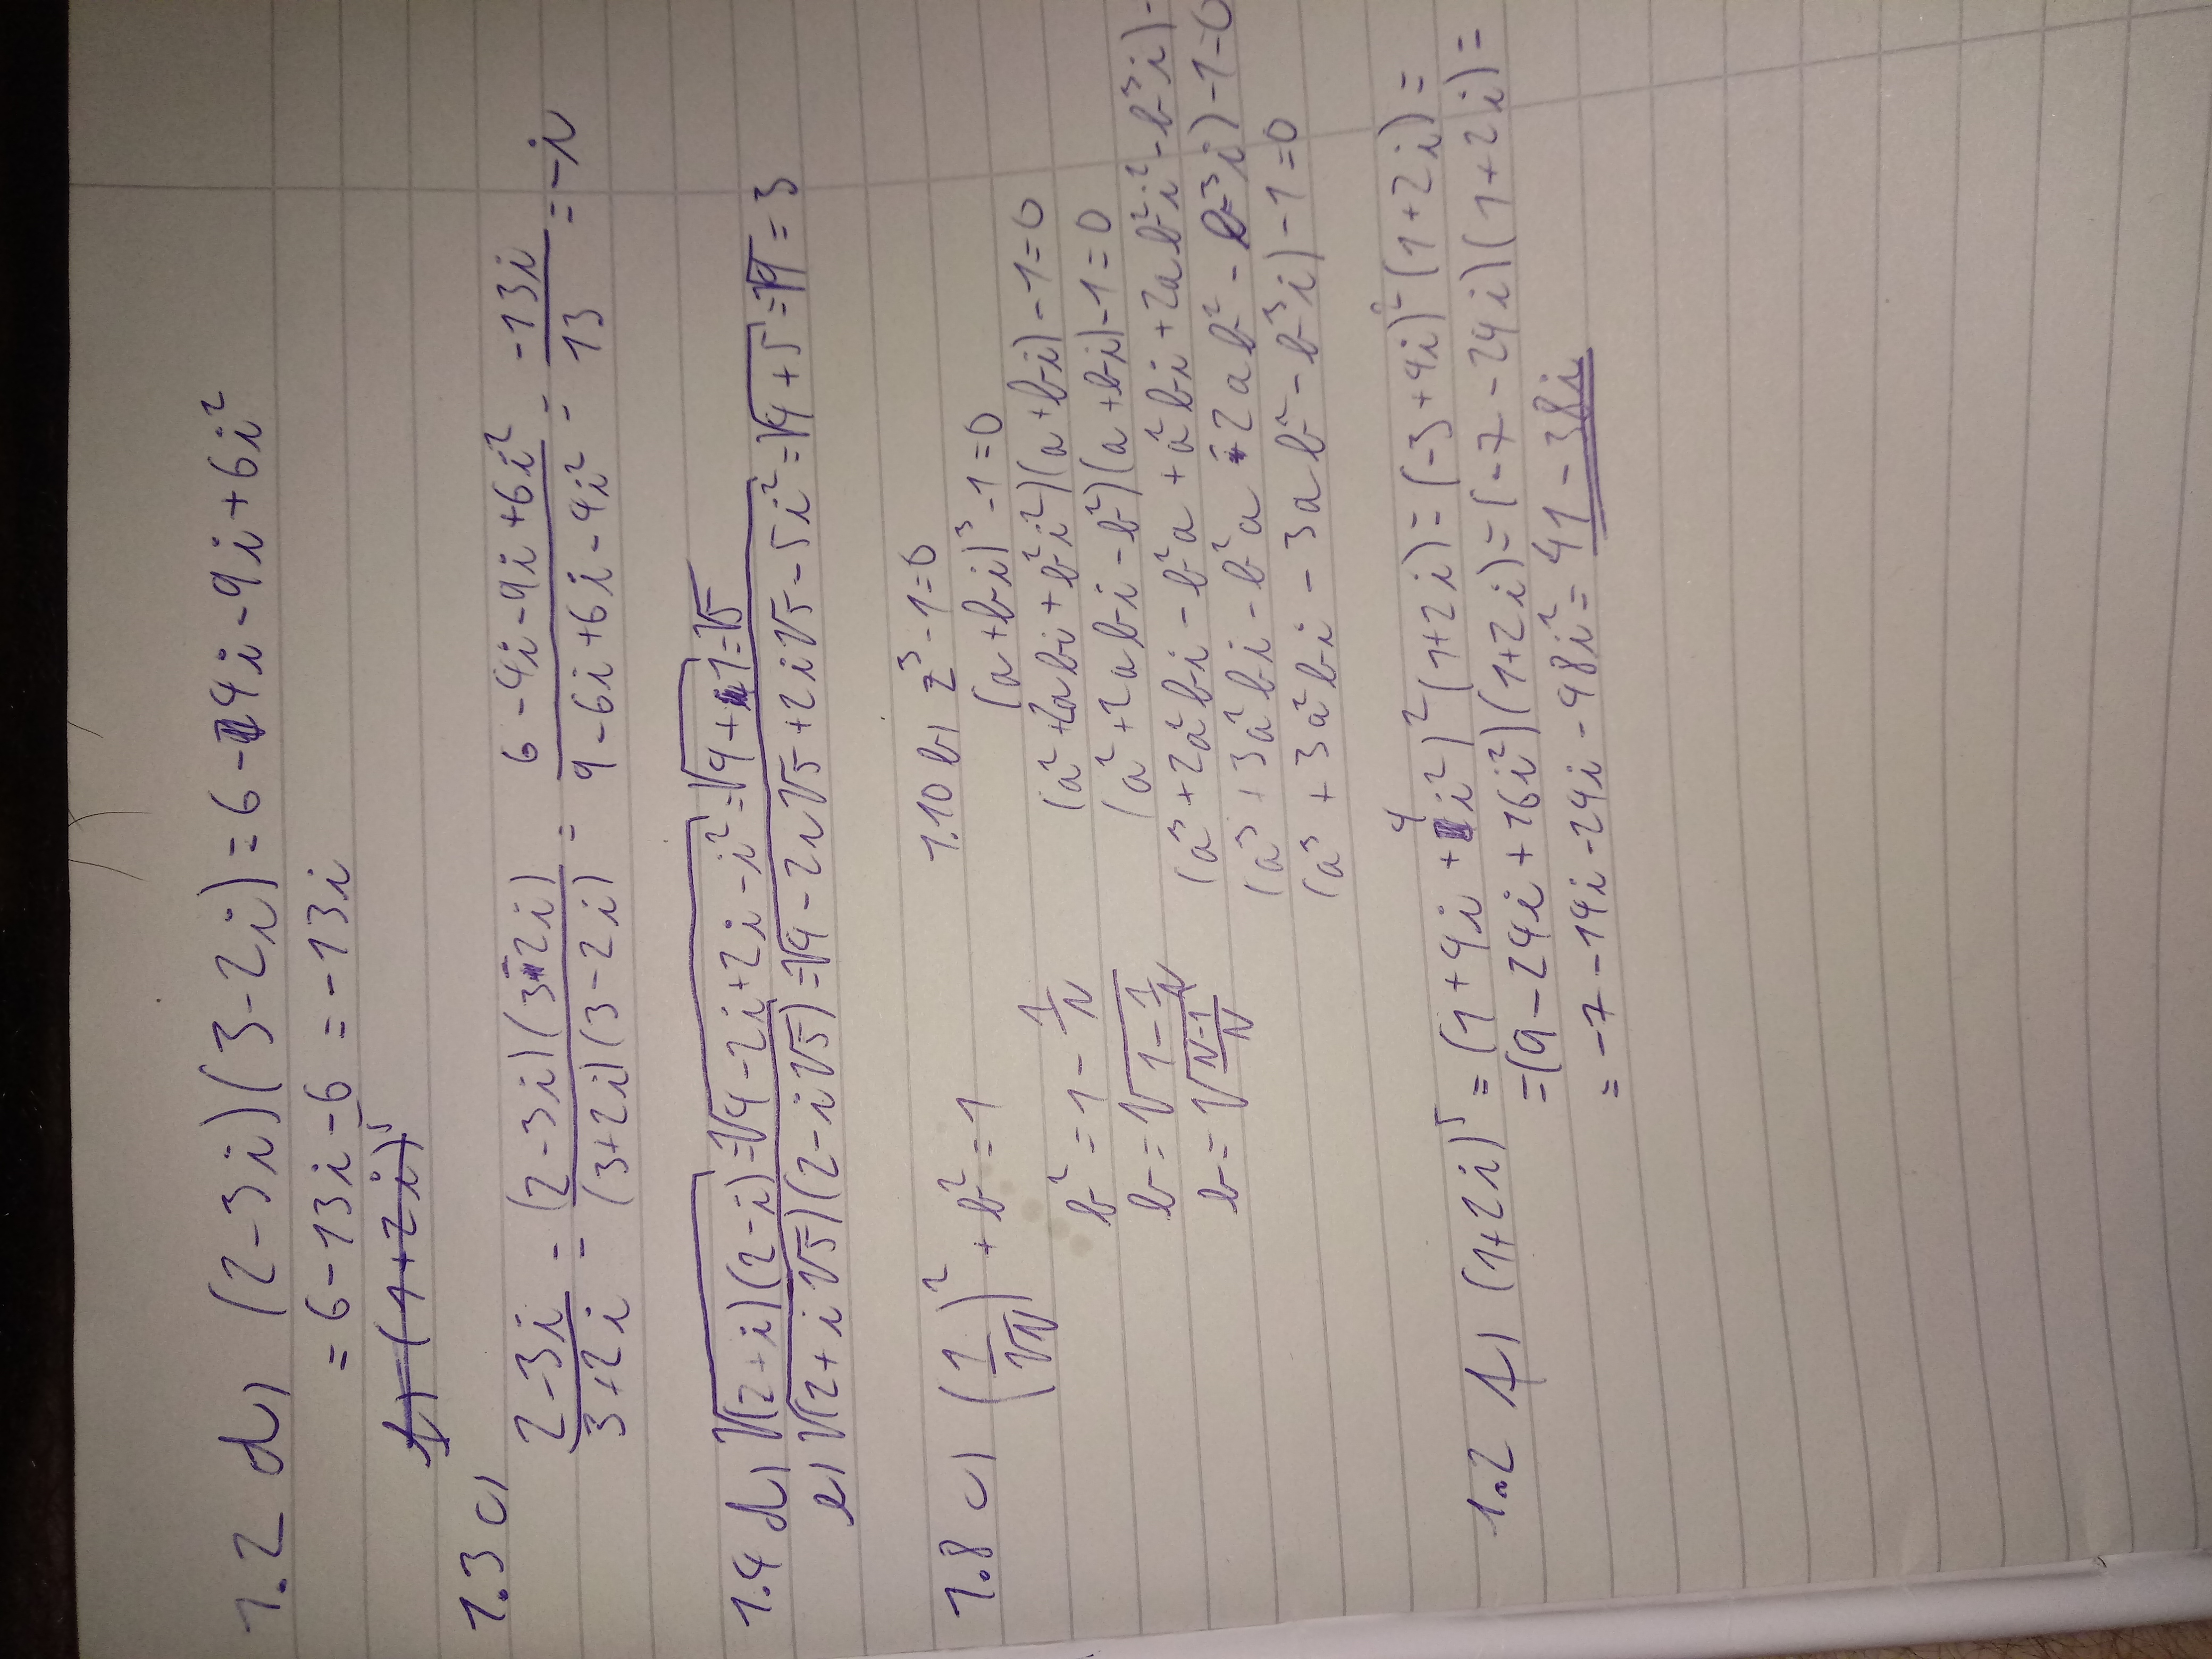 1.2 d) (2-3i)(3-2i) = 6-4i-9i+6i²
= 6-13i-6 = -13i
f) (1+2i)⁵
1.3 c)
(2-3i)/(3+2i) = ((2-3i)(3-2i))/((3+2i)(3-2i)) = (6-4i-9i+6i²)/(9-6i+6i-4i²) = (-13i)/13 = -i
1.4 d) √((2+i)(2-i)) = √(4-2i+2i-i²) = √(4+1) = √5
e) √((2+i√5)(2-i√5)) = √(4-2i√5+2i√5-5i²) = √(4+5) = √9 = 3
1.8 c) (1/√N)² + b² = 1
b² = 1 - 1/N
b = √(1 - 1/N)
b = √((N-1)/N)
1.10 b) z³-1=0
(a+bi)³-1=0
(a²+2abi+b²i²)(a+bi)-1=0
(a²+2abi-b²)(a+bi)-1=0
(a³+2a²bi-b²a+a²bi+2ab²i²-b³i)-
(a³+3a²bi-b²a-2ab²-b³i)-1=0
(a³+3a²bi-3ab²-b³i)-1=0
1.2 f) (1+2i)⁵ = (1+4i+4i²)²(1+2i) = (-3+4i)²(1+2i) =
=(9-24i+16i²)(1+2i) = (-7-24i)(1+2i) =
= -7-14i-24i-48i² = 41-38i